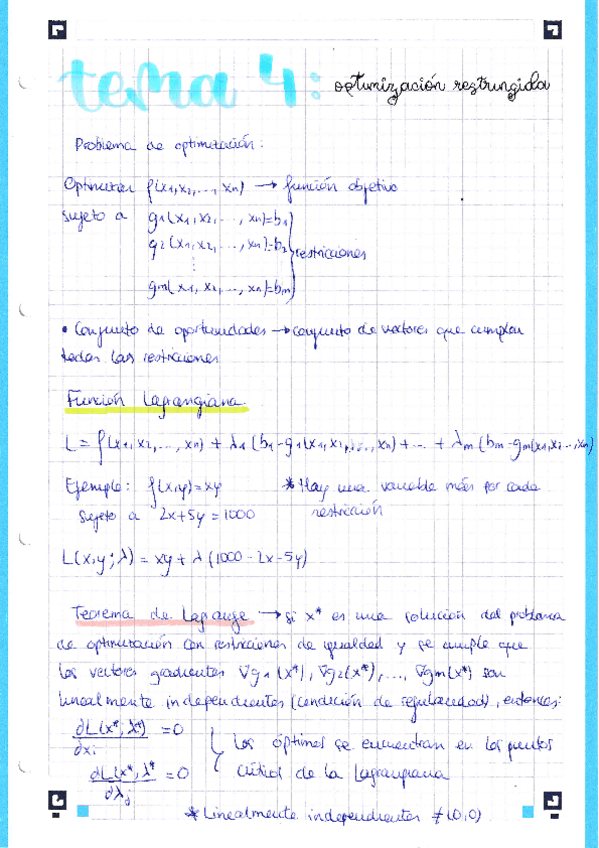 tema 4: optimización restringida
Problema de optimización:
Optimizar f(x1,x2,..., xn) → función objetivo
sujeto a g1(x1,x2,..., xn)=b1
g2(x1,x2,..., xn)=b2 } restricciones
⋮
gm(x1, x2, ..., xn)=bm
• Conjunto de oportunidades → conjunto de vectores que cumplen
todas las restricciones
Función Lagrangiana
L = f(x1,x2,..., xn) + λ1 (b1-g1(x1,x2,..., xn) + ... + λm (bm-gm(x1,x2...,xn)
Ejemplo: f(x,y)=xy * Hay una variable más por cada
sujeto a 2x+5y = 1000 restricción
L(x,y;λ) = xy + λ (1000-2x-5y)
Teorema de Lagrange → si x* es una solución del problema
de optimización con restricciones de igualdad y se cumple que
los vectores gradientes ∇g1(x*), ∇g2(x*), ..., ∇gm(x*) son
linealmente independientes (condición de regularidad), entonces:
∂L(x*; λ*)/∂xi = 0 { los óptimos se encuentran en los puntos
∂L(x*, λ*/∂λj = 0 críticos de la Lagrangiana
* Linealmente independientes ≠ (0,0)